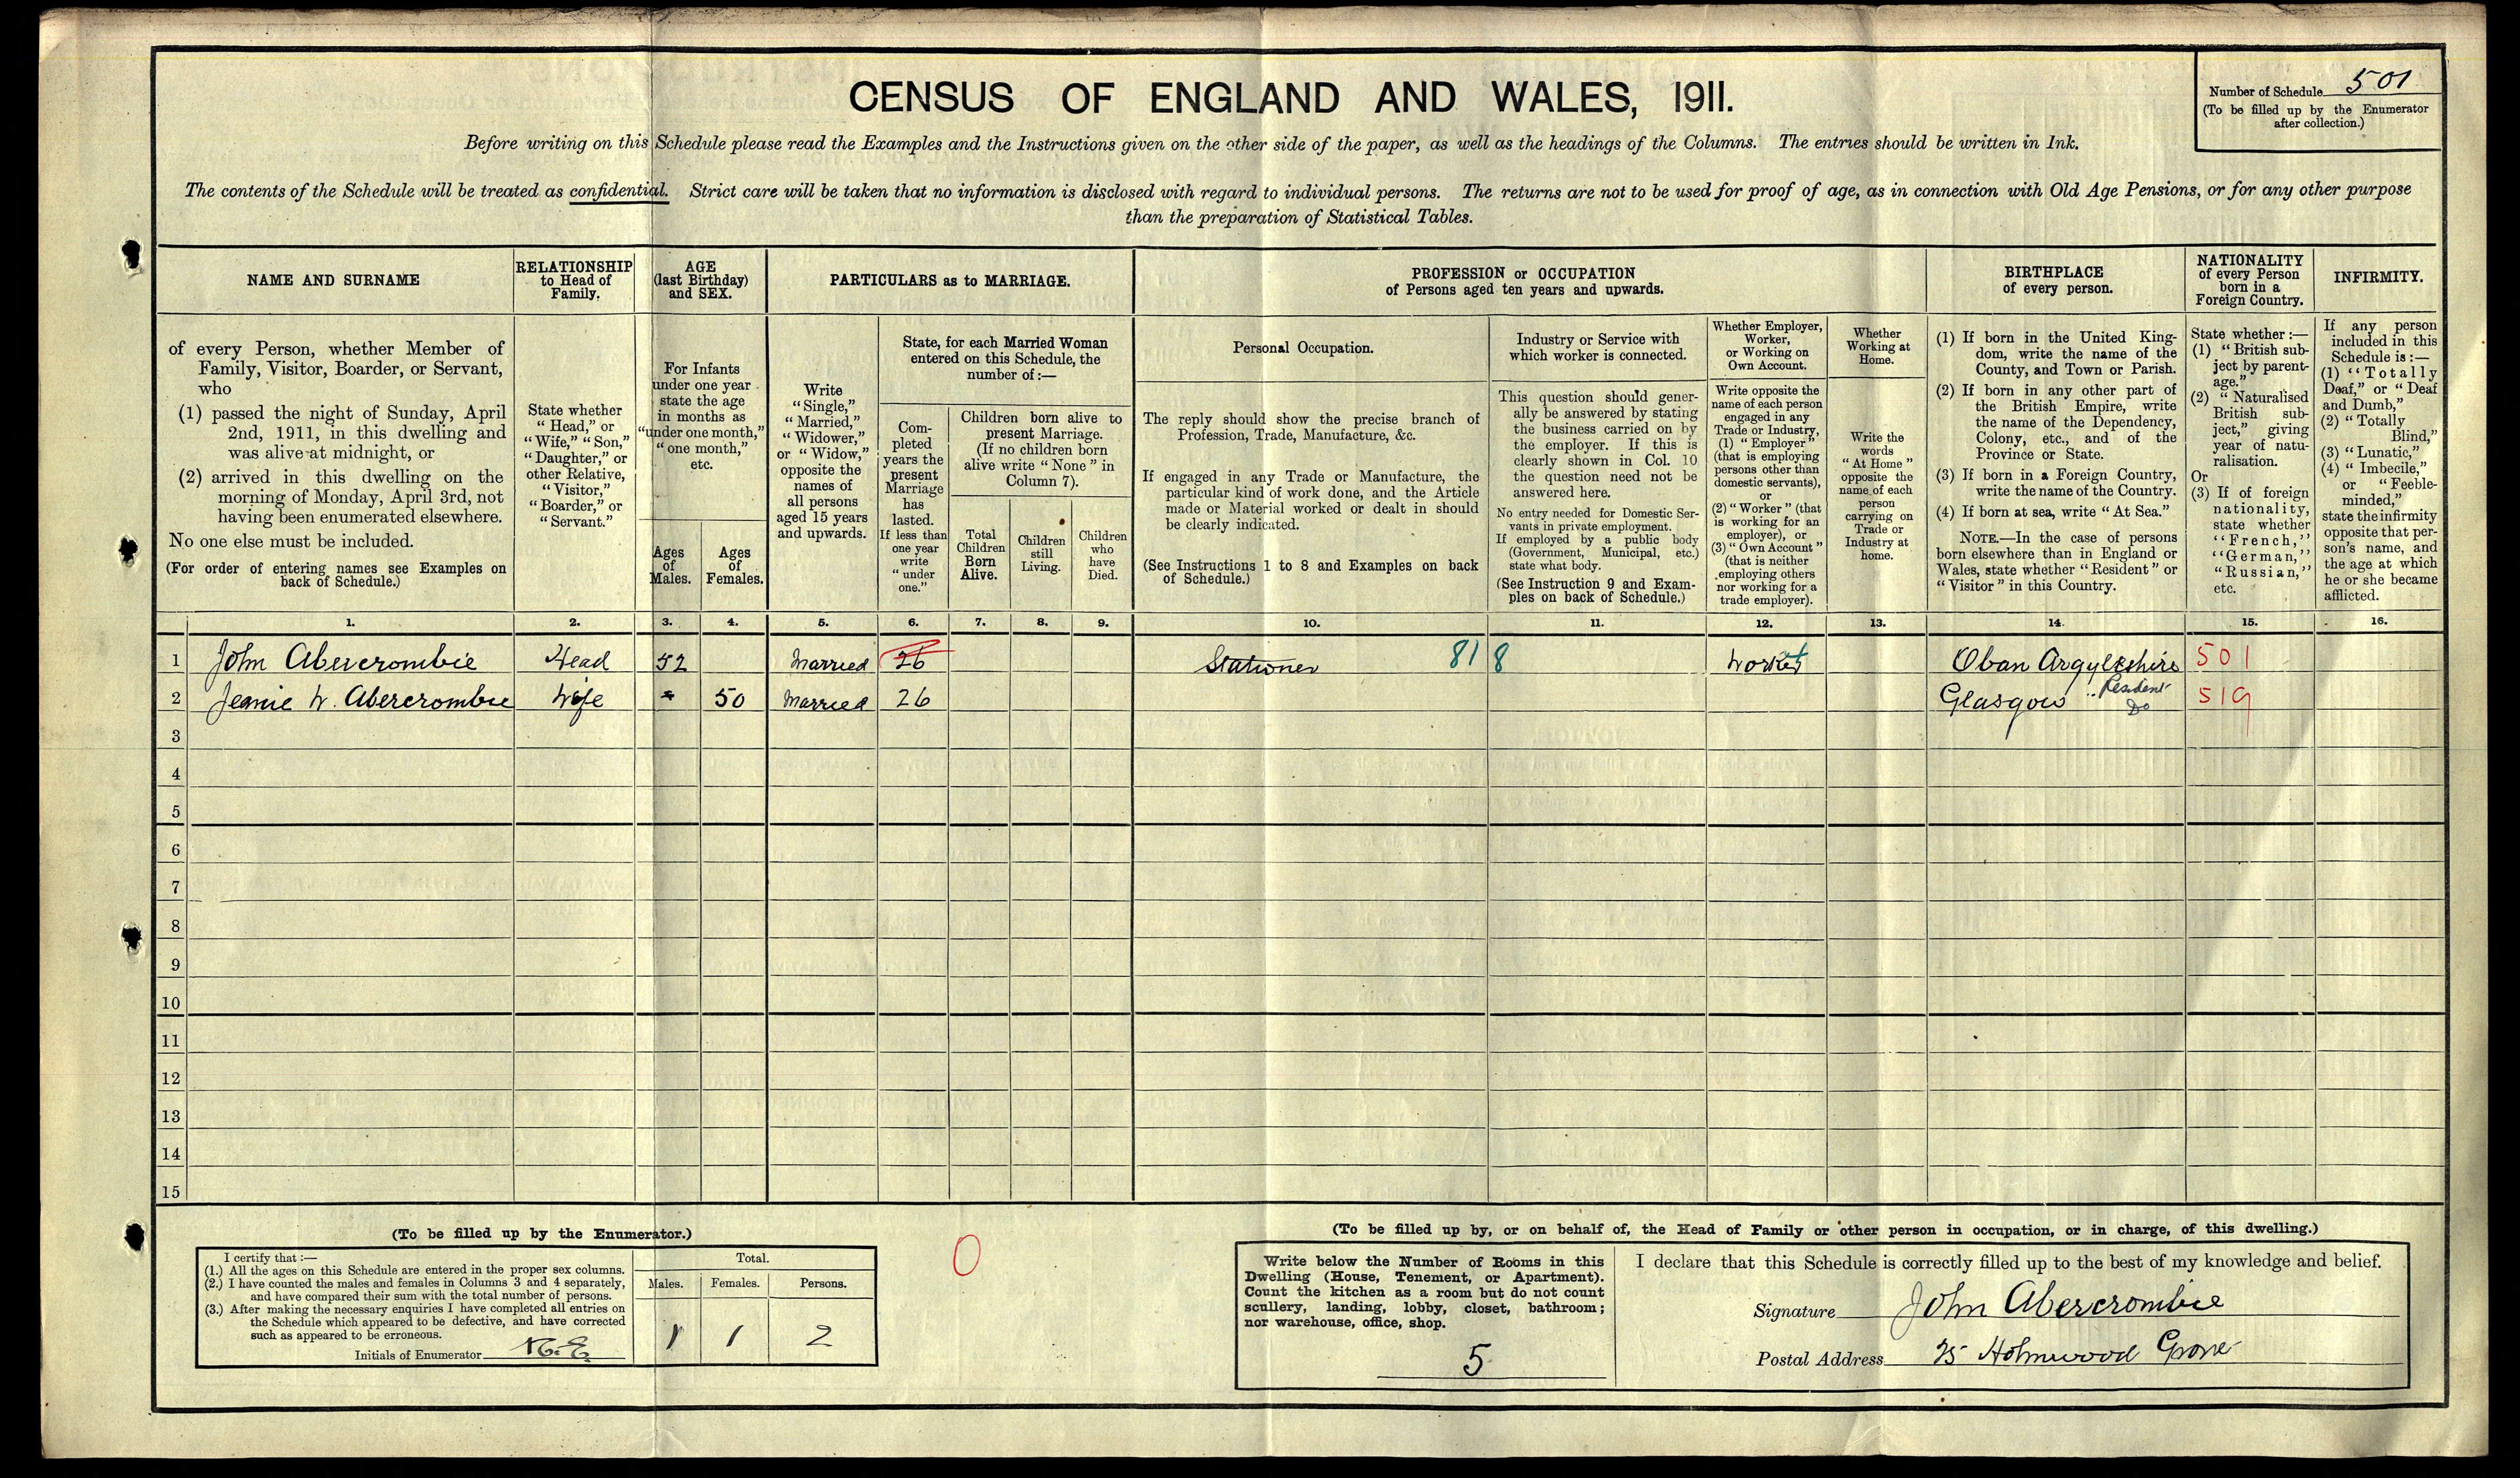 CENSUS OF ENGLAND AND WALES, 1911.
Number of Schedule 501
(To be filled up by the Enumerator
after collection.)
Before writing on this Schedule please read the Examples and the Instructions given on the other side of the paper, as well as the headings of the Columns. The entries should be written in Ink.
The contents of the Schedule will be treated as confidential. Strict care will be taken that no information is disclosed with regard to individual persons. The returns are not to be used for proof of age, as in connection with Old Age Pensions, or for any other purpose
than the preparation of Statistical Tables.
NAME AND SURNAME
of every Person, whether Member of
Family, Visitor, Boarder, or Servant,
who
(1) passed the night of Sunday, April
2nd, 1911, in this dwelling and
was alive at midnight, or
(2) arrived in this dwelling on the
morning of Monday, April 3rd, not
having been enumerated elsewhere.
No one else must be included.
(For order of entering names see Examples on
back of Schedule.)
RELATIONSHIP
to Head of
Family.
State whether
"Head," or
"Wife," "Son,"
"Daughter," or
other Relative,
"Visitor,"
"Boarder," or
"Servant."
AGE
(last Birthday)
and SEX.
For Infants
under one year
state the age
in months as
"under one month,"
"one month,"
etc.
Ages
of
Males.
Ages
of
Females.
PARTICULARS as to MARRIAGE.
Write
"Single,"
"Married,"
"Widower,"
or "Widow,"
opposite the
names of
all persons
aged 15 years
and upwards.
State, for each Married Woman
entered on this Schedule, the
number of:—
Com-
pleted
years the
present
Marriage
has
lasted.
If less than
one year
write
"under
one."
Children born alive to
present Marriage.
(If no children born
alive write "None" in
Column 7).
Total
Children
Born
Alive.
Children
still
Living.
Children
who
have
Died.
PROFESSION or OCCUPATION
of Persons aged ten years and upwards.
Personal Occupation.
The reply should show the precise branch of
Profession, Trade, Manufacture, &c.
If engaged in any Trade or Manufacture, the
particular kind of work done, and the Article
made or Material worked or dealt in should
be clearly indicated.
(See Instructions 1 to 8 and Examples on back
of Schedule.)
Industry or Service with
which worker is connected.
This question should gener-
ally be answered by stating
the business carried on by
the employer. If this is
clearly shown in Col. 10
the question need not be
answered here.
No entry needed for Domestic Ser-
vants in private employment.
If employed by a public body
(Government, Municipal, etc.)
state what body.
(See Instruction 9 and Exam-
ples on back of Schedule.)
Whether Employer,
Worker,
or Working on
Own Account.
Write opposite the
name of each person
engaged in any
Trade or Industry,
(1) "Employer"
(that is employing
persons other than
domestic servants),
or
(2) "Worker" (that
is working for an
employer), or
(3) "Own Account"
(that is neither
employing others
nor working for a
trade employer).
Whether
Working at
Home.
Write the
words
"At Home"
opposite the
name of each
person
carrying on
Trade or
Industry at
home.
BIRTHPLACE
of every person.
(1) If born in the United King-
dom, write the name of the
County, and Town or Parish.
(2) If born in any other part of
the British Empire, write
the name of the Dependency,
Colony, etc., and of the
Province or State.
(3) If born in a Foreign Country,
write the name of the Country.
(4) If born at sea, write "At Sea."
NOTE.—In the case of persons
born elsewhere than in England or
Wales, state whether "Resident" or
"Visitor" in this Country.
NATIONALITY
of every Person
born in a
Foreign Country.
State whether:—
(1) "British sub-
ject by parent-
age."
(2) "Naturalised
British sub-
ject," giving
year of natu-
ralisation.
Or
(3) If of foreign
nationality,
state whether
"French,"
"German,"
"Russian,"
etc.
INFIRMITY.
If any person
included in this
Schedule is:—
(1) "Totally
Deaf," or "Deaf
and Dumb,"
(2) "Totally
Blind,"
(3) "Lunatic,"
(4) "Imbecile,"
or "Feeble-
minded,"
state the infirmity
opposite that per-
son's name, and
the age at which
he or she became
afflicted.
1. 2. 3. 4. 5. 6. 7. 8. 9. 10. 11. 12. 13. 14. 15. 16.
1 John Abercrombie Head 52 Married 26 Stationer 818 Worker Oban Argyleshire 501
Resident
2 Jeanie W. Abercrombie Wife 50 Married 26 Glasgow Do 519
3
4
5
6
7
8
9
10
11
12
13
14
15
(To be filled up by the Enumerator.)
I certify that:—
(1.) All the ages on this Schedule are entered in the proper sex columns.
(2.) I have counted the males and females in Columns 3 and 4 separately,
and have compared their sum with the total number of persons.
(3.) After making the necessary enquiries I have completed all entries on
the Schedule which appeared to be defective, and have corrected
such as appeared to be erroneous.
Initials of Enumerator
Total.
Males. Females. Persons.
1 1 2
0
(To be filled up by, or on behalf of, the Head of Family or other person in occupation, or in charge, of this dwelling.)
Write below the Number of Rooms in this
Dwelling (House, Tenement, or Apartment).
Count the kitchen as a room but do not count
scullery, landing, lobby, closet, bathroom;
nor warehouse, office, shop.
5
I declare that this Schedule is correctly filled up to the best of my knowledge and belief.
Signature John Abercrombie
Postal Address Holmwood Grove